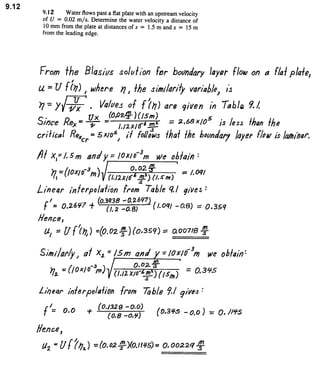 9.12
9.12 Water flows past a flat plate with an upstream velocity
of U = 0.02 m/s. Determine the water velocity a distance of
10 mm from the plate at distances of x = 1.5 m and x = 15 m
from the leading edge.
From the Blasius solution for boundary layer flow on a flat plate,
u = U f'(η), where η, the similarity variable, is
η = y √(U/νx) . Values of f'(η) are given in Table 9.1.
Since Reₓ = Ux/ν = (0.02 m/s)(15m)/(1.12×10⁻⁶ m²/s) = 2.68×10⁵ is less than the
critical Reₓcr = 5×10⁵, it follows that the boundary layer flow is laminar.
At x₁ = 1.5 m and y = 10×10⁻³ m we obtain:
η₁ = (10×10⁻³m) √(0.02 m/s / (1.12×10⁻⁶ m²/s)(1.5m)) = 1.091
Linear interpolation from Table 9.1 gives:
f' = 0.2647 + (0.3938-0.2647)/(1.2-0.8) (1.091-0.8) = 0.359
Hence,
u₁ = U f'(η₁) = (0.02 m/s)(0.359) = 0.00718 m/s
Similarly, at x₂ = 15m and y = 10×10⁻³ m we obtain:
η₂ = (10×10⁻³m) √(0.02 m/s / (1.12×10⁻⁶ m²/s)(15m)) = 0.345
Linear interpolation from Table 9.1 gives:
f' = 0.0 + (0.1328-0.0)/(0.8-0.4) (0.345-0.0) = 0.1145
Hence,
u₂ = U f'(η₂) = (0.02 m/s)(0.1145) = 0.00229 m/s